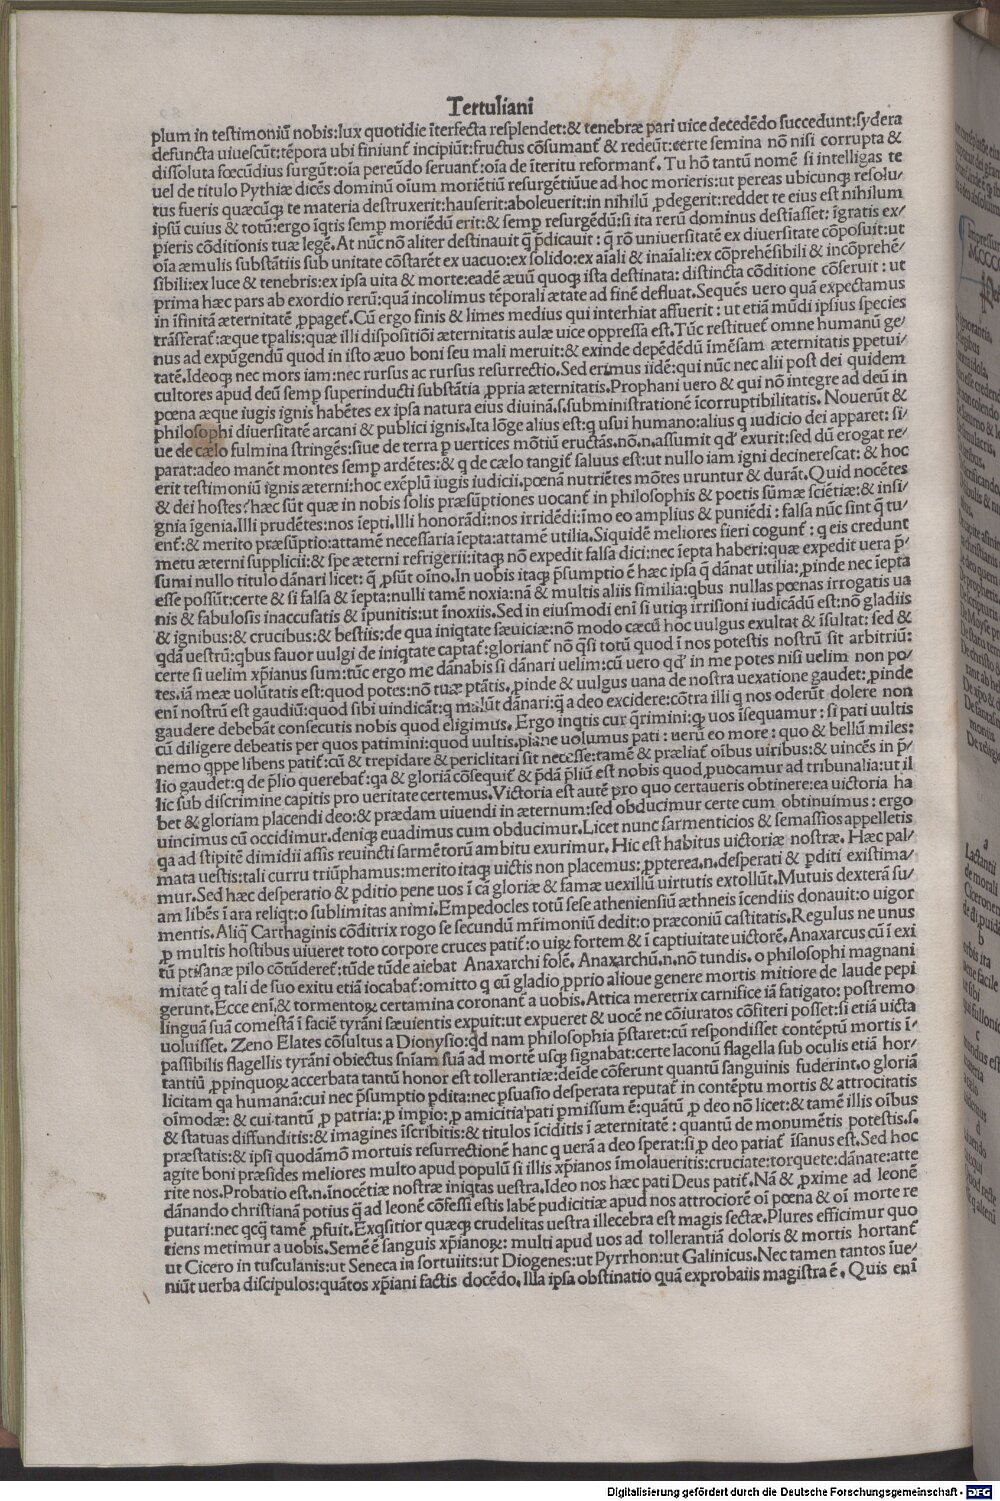 Tertuliani
plum in testimoniū nobis:lux quotidie īterfecta resplendet:& tenebræ pari uice decedēdo succedunt:sydera
defuncta uiuescūt:tēpora ubi finiunt̄ incipiūt:fructus cōsumant̄ & redeūt:certe semina nō nisi corrupta &
dissoluta fœcūdius surgūt:oīa pereūdo seruant̄:oīa de īteritu reformant̄. Tu hō tantū nomē si intelligas te
uel de titulo Pythiæ dicēs dominū oīum moriētiū resurgētiūue ad hoc morieris:ut pereas ubicunqꝫ resolu/
tus fueris quæcūqꝫ te materia destruxerit:hauserit:aboleuerit:in nihilū ꝓdegerit:reddet te eius est nihilum
ipsū cuius & totū:ergo īqtis semꝑ moriēdū erit:& semꝑ resurgēdū:si ita rerū dominus destiasset: īgratis ex/
pieris cōditionis tuæ legē. At nūc nō aliter destinauit q̄ p̄dicauit : q̄ rō uniuersitatē ex diuersitate cōposuit:ut
oīa æmulis substātiis sub unitate cōstarēt ex uacuo:ex solido:ex aīali & inaīali:ex cōprehēsibili & incōprehē/
sibili:ex luce & tenebris:ex ipsa uita & morte:eadē æuū quoqꝫ ista destinata: distincta cōditione cōseruit : ut
prima hæc pars ab exordio rerū:quā incolimus tēporali ætate ad finē defluat.Sequēs uero quā expectamus
in īfinitā æternitatē ꝓpaget̄. Cū ergo finis & limes medius qui interhiat affuerit : ut etiā mūdi ipsius species
trāsferat̄:æque tꝑalis:quæ illi dispositiōi æternitatis aulæ uice oppressa est.Tūc restituet̄ omne humanū ge/
nus ad expūgendū quod in isto æuo boni seu mali meruit:& exinde depēdēdū īmēsam æternitatis ꝑpetui/
tatē.Ideoqꝫ nec mors iam:nec rursus ac rursus resurrectio.Sed erimus iidē:qui nūc nec alii post dei quidem
cultores apud deū semꝑ superinducti substātia ꝓpria æternitatis.Prophani uero & qui nō integre ad deū in
pœna æque iugis ignis habētes ex ipsa natura eius diuinā.s.subministrationē īcorruptibilitatis. Nouerūt &
philosophi diuersitatē arcani & publici ignis.Ita lōge alius est:q usui humano:alius q iudicio dei apparet: si/
ue de cælo fulmina stringēs:siue de terra ꝑ uertices mōtiū eructās.nō.n.assumit qd̄ exurit:sed dū erogat re/
parat:adeo manēt montes semꝑ ardētes:& q de cælo tangit̄ saluus est:ut nullo iam igni decinerescat: & hoc
erit testimoniū ignis æterni:hoc exēplū iugis iudicii.pœnā nutriētes mōtes uruntur & durāt.Quid nocētes
& dei hostes? hæc sūt quæ in nobis solis præsūptiones uocant̄ in philosophis & poetis sūmæ sciētiæ:& insi/
gnia īgenia.Illi prudētes:nos īepti.Illi honorādi:nos irridēdi:īmo eo amplius & puniēdi : falsa nūc sint q̄ tu/
ent̄:& merito præsūptio:attamē necessaria īepta:attamē utilia.Siquidē meliores fieri cogunt̄ : q eis credunt
metu æterni supplicii:& spe æterni refrigerii:itaqꝫ nō expedit falsa dici:nec īepta haberi:quæ expedit uera p̄
sumi nullo titulo dānari licet: q̄ ꝓsūt oīno.In uobis itaqꝫ p̄sumptio ē hæc ipsa q̄ dānat utilia:ꝓinde nec īepta
esse possūt:certe & si falsa & īepta:nulli tamē noxia:nā & multis aliis similia:qbus nullas pœnas irrogatis ua
nis & fabulosis inaccusatis & īpunitis:ut īnoxiis.Sed in eiusmodi enī si utiqꝫ irrisioni iudicādū est:nō gladiis
& ignibus:& crucibus:& bestiis:de qua iniqtate sæuiciæ:nō modo cæcū hoc uulgus exultat & īsultat: sed &
qdā uestrū:qbus fauor uulgi de iniqtate captat̄:gloriant̄ nō q̄si totū quod ī nos potestis nostrū sit arbitriū:
certe si uelim xp̄ianus sum:tūc ergo me dānabis si dānari uelim:cū uero qd̄ in me potes nisi uelim non po/
tes.iā meæ uolūtatis est:quod potes:nō tuæ ptātis.ꝓinde & uulgus uana de nostra uexatione gaudet:ꝓinde
enī nostrū est gaudiū:quod sibi uindicāt:q malūt dānari:q̄ a deo excidere:cōtra illi q nos oderūt dolere non
gaudere debebāt consecutis nobis quod eligimus. Ergo inqtis cur q̄rimini:qꝫ uos īsequamur : si pati uultis
cū diligere debeatis per quos patimini:quod uultis.plane uolumus pati : uerū eo more : quo & bellū miles:
nemo qppe libens patit̄:cū & trepidare & periclitari sit necesse:tamē & præliat̄ oībus uiribus:& uincēs in p̄/
lio gaudet:q de p̄lio querebat̄:qa & gloriā cōsequit̄ & p̄dā p̄liū est nobis quod ꝓuocamur ad tribunalia:ut il
lic sub discrimine capitis pro ueritate certemus.Victoria est autē pro quo certaueris obtinere:ea uictoria ha
bet & gloriam placendi deo:& prædam uiuendi in æternum:sed obducimur certe cum obtinuimus : ergo
uincimus cū occidimur.deniqꝫ euadimus cum obducimur.Licet nunc sarmenticios & semassios appelletis
qa ad stipitē dimidii assis reuincti sarmētorū ambitu exurimur. Hic est habitus uictoriæ nostræ. Hæc pal/
mata uestis:tali curru triūphamus:merito itaqꝫ uictis non placemus: ꝓpterea.n.desperati & ꝑditi existima/
mur.Sed hæc desperatio & ꝑditio pene uos ī cā gloriæ & famæ uexillū uirtutis extollūt.Mutuis dexterā su/
am libēs ī ara reliqt:o sublimitas animi.Empedocles totū sese atheniensiū æthneis īcendiis donauit:o uigor
mentis.Aliq̄ Carthaginis cōditrix rogo se secundū mr̄imoniū dedit:o præconiū castitatis.Regulus ne unus
ꝓ multis hostibus uiueret toto corpore cruces patit̄:o uiꝝ fortem & ī captiuitate uictorē.Anaxarcus cū ī exi
tū ptisanæ pilo cōtūderet̄:tūde tūde aiebat Anaxarchi folē. Anaxarchū.n.nō tundis. o philosophi magnani
mitatē q tali de suo exitu etiā iocabat̄:omitto q cū gladio ꝓprio alioue genere mortis mitiore de laude pepi
gerunt.Ecce enī,& tormentoꝝ certamina coronant̄ a uobis.Attica meretrix carnifice iā fatigato: postremo
linguā suā comestā ī faciē tyrāni sæuientis expuit:ut expueret & uocē ne cōiuratos cōfiteri posset:si etiā uicta
uoluisset. Zeno Elates cōsultus a Dionysio:qd nam philosophia p̄staret:cū respondisset contēptū mortis ī/
passibilis flagellis tyrāni obiectus sn̄iam suā ad mortē usqꝫ signabat:certe laconū flagella sub oculis etiā hor/
tantiū ꝓpinquoꝝ accerbata tantū honor est tollerantiæ:deīde cōferunt quantū sanguinis fuderint.o gloriā
licitam qa humanā:cui nec p̄sumptio ꝑdita:nec ꝑsuasio desperata reputat̄ in contēptu mortis & attrocitatis
oīmodæ: & cui tantū ꝓ patria: ꝓ impio: ꝓ amicitia pati ꝑmissum ē:quātū ꝓ deo nō licet:& tamē illis oībus
& statuas diffunditis:& imagines īscribitis:& titulos īciditis ī æternitatē : quantū de monumētis potestis.s.
præstatis:& ipsi quodāmō mortuis resurrectionē hanc q uerā a deo sperat:si ꝓ deo patiat̄ īsanus est.Sed hoc
agite boni præsides meliores multo apud populū si illis xp̄ianos īmolaueritis:cruciate:torquete:dānate:atte
rite nos.Probatio est.n.īnocētiæ nostræ iniqtas uestra.Ideo nos hæc pati Deus patit̄. Nā & ꝓxime ad leonē
dānando christianā potius q̄ ad leonē cōfessi estis labē pudicitiæ apud nos attrociorē oī pœna & oī morte re
putari:nec qcq̄ tamē ꝓfuit.Exqsitior quæqꝫ crudelitas uestra illecebra est magis sectæ.Plures efficimur quo
tiens metimur a uobis.Semē ē sanguis xp̄ianoꝝ: multi apud uos ad tollerantiā doloris & mortis hortant̄
ut Cicero in tusculanis:ut Seneca in fortuiits:ut Diogenes:ut Pyrrhon:ut Galinicus.Nec tamen tantos īue/
niūt uerba discipulos:quātos xp̄iani factis docēdo. Illa ipsa obstinatio quā exprobatis magistra ē. Quis enī
Digitalisierung gefördert durch die Deutsche Forschungsgemeinschaft - DFG